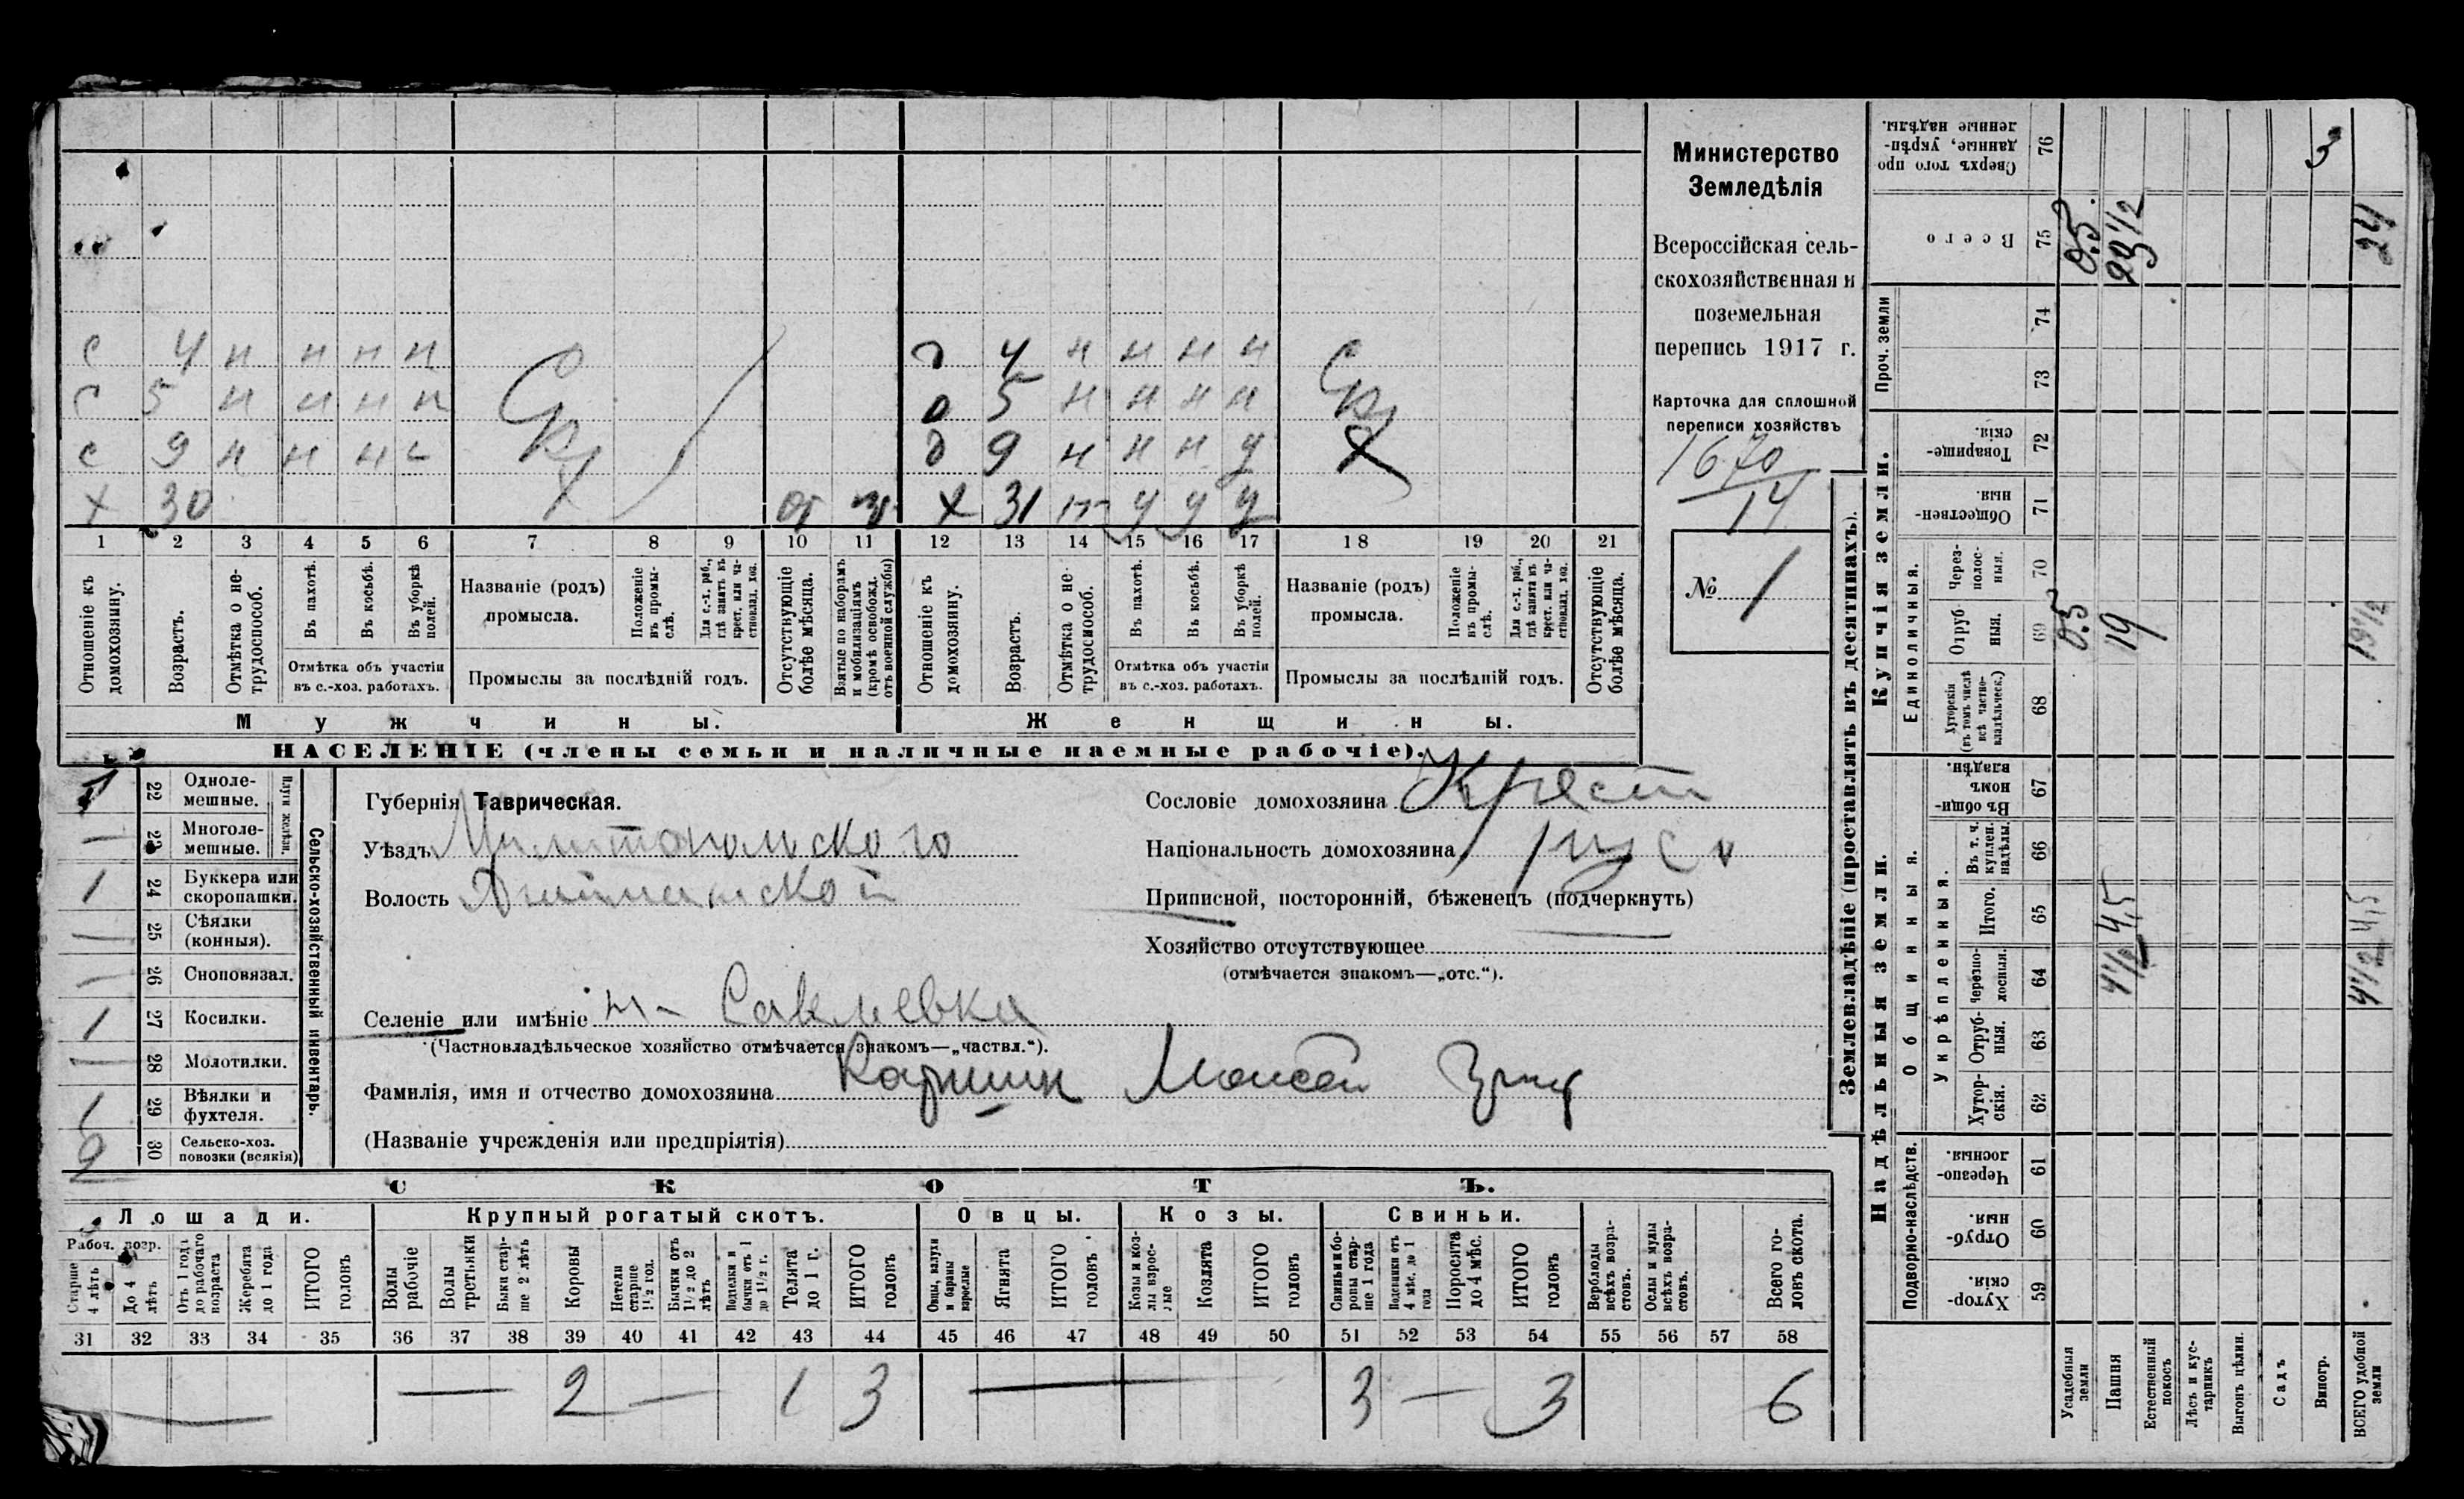 с 4 н н н н д 4 н н н н
с 5 н н н н д 5 н н н н
с 9 н н н н д 9 н н н у
х 30 х 31 у у у
1 2 3 4 5 6 7 8 9 10 11 12 13 14 15 16 17 18 19 20 21
Отношеніе къ домохозяину.
Возрастъ.
Отмѣтка о не-трудоспособ.
Въ пахотѣ.
Въ косьбѣ.
Въ уборкѣ полей.
Отмѣтка объ участіи въ с.-хоз. работахъ.
Названіе (родъ) промысла.
Положеніе въ промы-слѣ.
Для с.-х. раб., гдѣ занятъ въ крест. или ча-стновлад. хоз.
Промыслы за послѣдній годъ.
Отсутствующіе болѣе мѣсяца.
Взятые по наборамъ и мобилизаціямъ (кромѣ освобожд. отъ военной службы)
Отношеніе къ домохозяину.
Возрастъ.
Отмѣтка о не-трудоспособ.
Въ пахотѣ.
Въ косьбѣ.
Въ уборкѣ полей.
Отмѣтка объ участіи въ с.-хоз. работахъ.
Названіе (родъ) промысла.
Положеніе въ промы-слѣ.
Для с.-х. раб., гдѣ занята въ крест. или ча-стновлад. хоз.
Промыслы за послѣдній годъ.
Отсутствующіе болѣе мѣсяца.
Мужчины.
Женщины.
НАСЕЛЕНІЕ (члены семьи и наличные наемные рабочіе).
Министерство
Земледѣлія
Всероссійская сель-
скохозяйственная и
поземельная
перепись 1917 г.
Карточка для сплошной
переписи хозяйствъ
1670
14
№ 1
Сельско-хозяйственный инвентарь.
Плуги желѣзн.
1 22 Одноле-мешные.
— 23 Многоле-мешные.
1 24 Буккера или скоропашки.
— 25 Сѣялки (конныя).
— 26 Сноповязал.
1 27 Косилки.
— 28 Молотилки.
1 29 Вѣялки и фухтеля.
2 30 Сельско-хоз. повозки (всякія)
Губернія Таврическая.
Уѣздъ Мелитопольского
Волость
Селеніе или имѣніе Савлевка
(Частновладѣльческое хозяйство отмѣчается знакомъ—„частвл.“).
Фамилія, имя и отчество домохозяина Каршин Моисей
(Названіе учрежденія или предпріятія)
Сословіе домохозяина Крест
Національность домохозяина русс
Приписной, посторонній, бѣженецъ (подчеркнуть)
Хозяйство отсутствующее
(отмѣчается знакомъ—„отс.“).
СКОТЪ.
Лошади. Крупный рогатый скотъ. Овцы. Козы. Свиньи.
Рабоч. возр.
Старше 4 лѣтъ
До 4 лѣтъ
Отъ 1 года до рабочаго возраста
Жеребята до 1 года
ИТОГО головъ
Волы рабочіе
Волы третьяки
Быки стар-ше 2 лѣтъ
Коровы
Нетели старше 1½ год.
Бычки отъ 1½ до 2 лѣтъ
Подтелки и бычки отъ 1 до 1½ г.
Телята до 1 г.
ИТОГО головъ
Овцы, валухи и бараны взрослые
Ягнята
ИТОГО головъ
Козы и коз-лы взрос-лые
Козлята
ИТОГО головъ
Свиньи и бо-ровы стар-ше 1 года
Подсвинки отъ 4 мѣс. до 1 года
Поросята до 4 мѣс.
ИТОГО головъ
Верблюды всѣхъ возра-стовъ.
Ослы и мулы всѣхъ возра-стовъ.
Всего го-ловъ скота.
31 32 33 34 35 36 37 38 39 40 41 42 43 44 45 46 47 48 49 50 51 52 53 54 55 56 57 58
— — 2 — 1 3 — 3 — 3 6
Землевладѣніе (проставлять въ десятинахъ).
Надѣльныя земли.
Купчія земли.
Проч. земли
Подворно-наслѣдств.
Общинныя.
Укрѣпленныя.
Единоличныя.
Хутор-скія. 59
Отруб-ныя. 60
Черезпо-лосныя. 61
Хутор-скія. 62
Отруб-ныя. 63
Черезпо-лосныя. 64
Итого. 65
Въ т. ч. куплен. надѣлы. 66
Въ общи-номъ владѣн. 67
Хуторскія (въ томъ числѣ всѣ частно-владѣльческ.) 68
Отруб-ныя. 69
Через-полос-ныя. 70
Обществен-ныя. 71
Товарище-скія. 72
73
74
Всего 75
Сверхъ того про данные, укрѣп-ленные надѣлы. 76
Усадебныя земли 0.5 0.5
Пашня 4½ 4,5 19 23½
Естественный покосъ
Лѣсъ и кус-тарникъ
Выгонъ цѣлин.
Садъ
Виногр. 3
ВСЕГО удобной земли 4½ 4,5 19½ 24